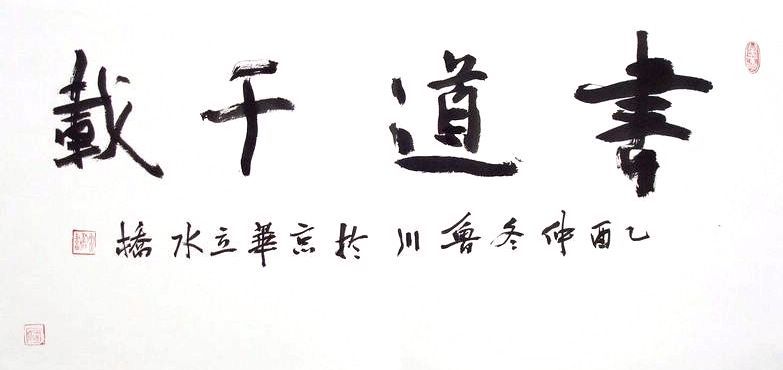 書道千載
乙酉仲冬魯川於京華立水橋